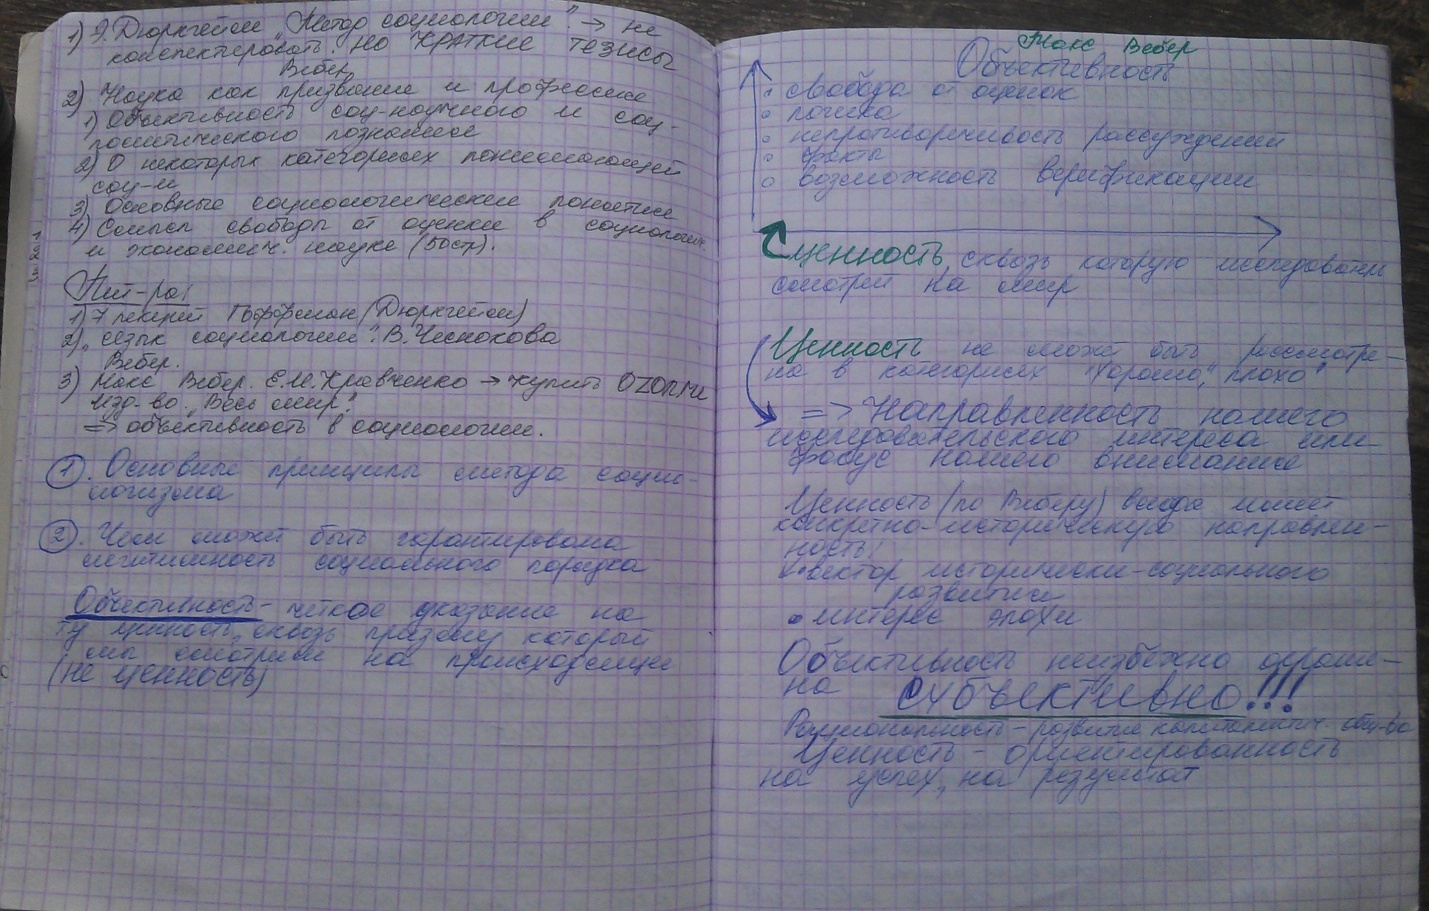 1) Э. Дюркгейм „Метод социологии" → не
конспектировать, но КРАТКИЕ ТЕЗИСЫ
Вебер
2) Наука как призвание и профессия
1) Объективность соц-научного и соц-
политического познания
2) О некоторых категориях понимающей
соц-и
3) Основные социологические понятия
4) Смысл свободы от оценки в социологич.
и экономич. науке (50стр).
Лит-ра:
1) 7 лекций Гофман (Дюркгейм)
2) „Язык социологии". В. Чеснокова
Вебер.
3) Макс Вебер. Е.И. Кравченко → купить OZON.ru
Изд-во „Весь мир".
=> объективность в социологии.
1. Основные принципы метода социо-
логизма
2. Чем может быть гарантирована
легитимность социального порядка
Объективность - чёткое указание на
ту ценность, сквозь призму которой
мы смотрим на происходящее
(не ценность)
Макс Вебер
Объективность
• свобода от оценок
• логика
• непротиворечивость рассуждений
• факты
• возможность верификации
ценность сквозь которую исследователь
смотрит на мир
Ценность не может быть рассмотре-
на в категориях "хорошо", "плохо"
=> Направленность нашего
исследовательского интереса или
фокус нашего внимания
Ценность (по Веберу) всегда имеет
конкретно-историческую направлен-
ность:
• вектор исторически-социального
развития
• интерес эпохи
Объективность неизбежно
на СУБЪЕКТИВНО!!!
Рациональность - развитие капиталистич. общ-ва
Ценность - ориентированность
на успех, на результат